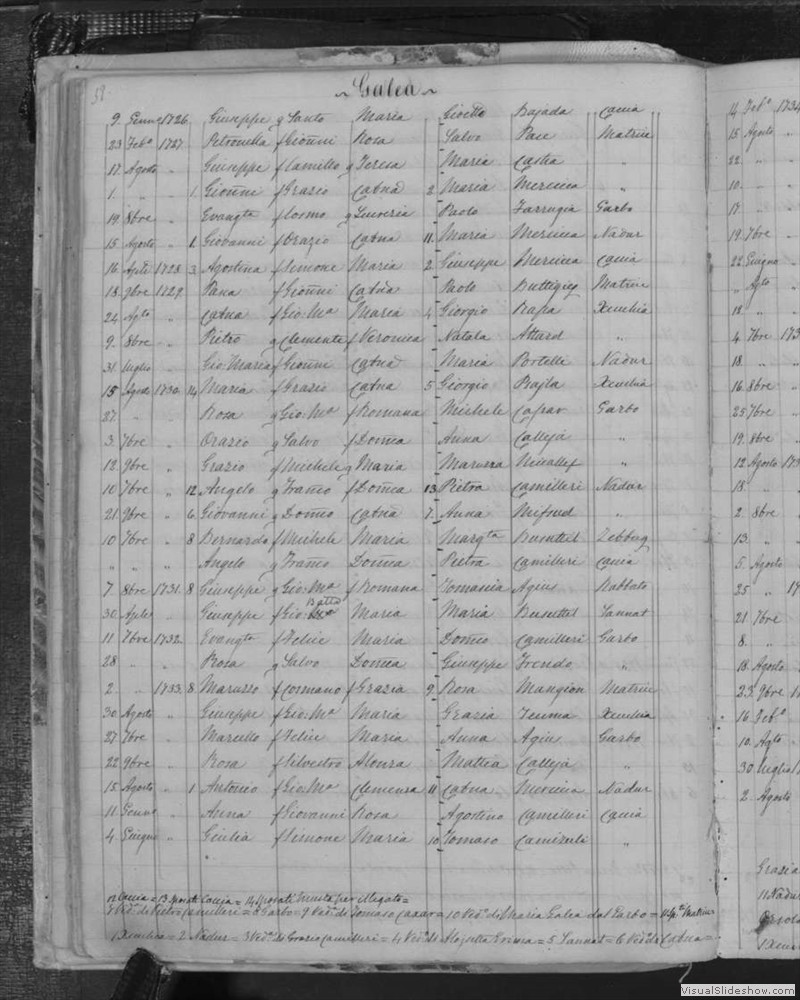 52.
~ Galea ~
9. Genn. 1726. Giuseppe q Santo Maria Gioello Bajada Cauia
23 Feb.º 1727. Petronilla f Gioñni Rosa Salvo Pace Matrice
17. Agosto " Giuseppe f Camillo q Teresa Maria Castia "
1. " " 1. Gioñni f Grazio Catña 2. Maria Mercieca "
19. 8bre " Evangta f Cosmo q Saveria Paolo Farrugia Garbo
15 Agosto " 1. Giovanni f Orazio Catna 11. Maria Mercieca Nadur
16 1728. 3 Agostina f Simone Maria 2. Giuseppe Mercieca Cauia
18. 9bre 1729. Pana f Gioñni Catña Paolo Buttigieg Matrice
24 Agto " Catna f Gio: Mª Maria 4 Giorgio Rapa Xeuchia
9. 8bre " Pietro q Clemente f Veronica Natala Attard "
31 luglio " Gio Maria f Gioñni Catña Maria Portelli Nadur
15 Agosto 1730. 14 Maria f Grazio Catna 5 Giorgio Xeuchia
27. " " Rosa q Gio: Mª f Romana Michele Caspar Garbo
3. 7bre " Orazio q Salvo f Domca Anna Calleja "
12. 9bre " Grazio f Michele q Maria Maruzza Micallef "
10 7bre " 12. Angelo q Franco f Domca 13. Pietra Camilleri Nadur
21. 9bre " 6. Giovanni q Domco Catña 7. Anna Mifsud "
10 7bre " 8 Bernardo f Michele Maria Margta Busuttil Zebbug
" " " Angelo q Franco Domca Pietra Camilleri Cauia
7. 8bre 1731. 8 Giuseppe q Gio: Mª f Romana Tomasia Agius Rabbato
30. " Giuseppe f Gio: Batta Maria Maria Busuttil Sannat
11 7bre 1732. Evangta f Felice Maria Domco Camilleri Garbo
28 " " Rosa q Salvo Domca Giuseppe Trendo "
2. " 1733. 8. Maruzzo f Cosmano f Grazia 9. Rosa Mangion Matrice
30 Agosto " Giuseppe f Gio: Mª Maria Grazia Teuma Xeuchia
27 7bre " Marcello f Felice Maria Anna Agius Garbo
22 9bre " Rosa f Silvestro Alonza Mattia Calleja "
15 Agosto " 1 Antonio f Gio: Mª Clemenza 11 Catna Mercieca Nadur
11 Genn.º " Anna f Giovanni Rosa Agostino Camilleri Cauia
4 Giugno " Giulia f Simone Maria 10 Tomaso Camizuli "
12 Cauia = 13 sposati Cauia = 14 sposati
Ved.ª di Pietro Camilleri = 8 Garbo = 9 Ved.ª di Tomaso = 10 Ved.º di Maria Galea dal Garbo = Matrice
1 Xeuchia = 2 Nadur = 3 Ved.ª di Grazio Camilleri = 4 Ved.º di = 5 Sannat = 6 Ved.º di Catna =
14 Feb.º 1734
15 Agosto "
22 " "
10. " "
17 " "
19. 7bre "
22 Giugno "
" Agto "
18 " "
4 7bre
18. "
16 8bre
25 7bre
19. 8bre
12 Agosto
18. "
2. 8bre
13. "
5. Agosto
25 "
21. 7bre
8. "
18. Agosto
23. 9bre
16 Feb.º
10. Agto
30 luglio
2. Agosto
Grazia
11 Nadur
1 Xeuchia
VisualSlideshow.com